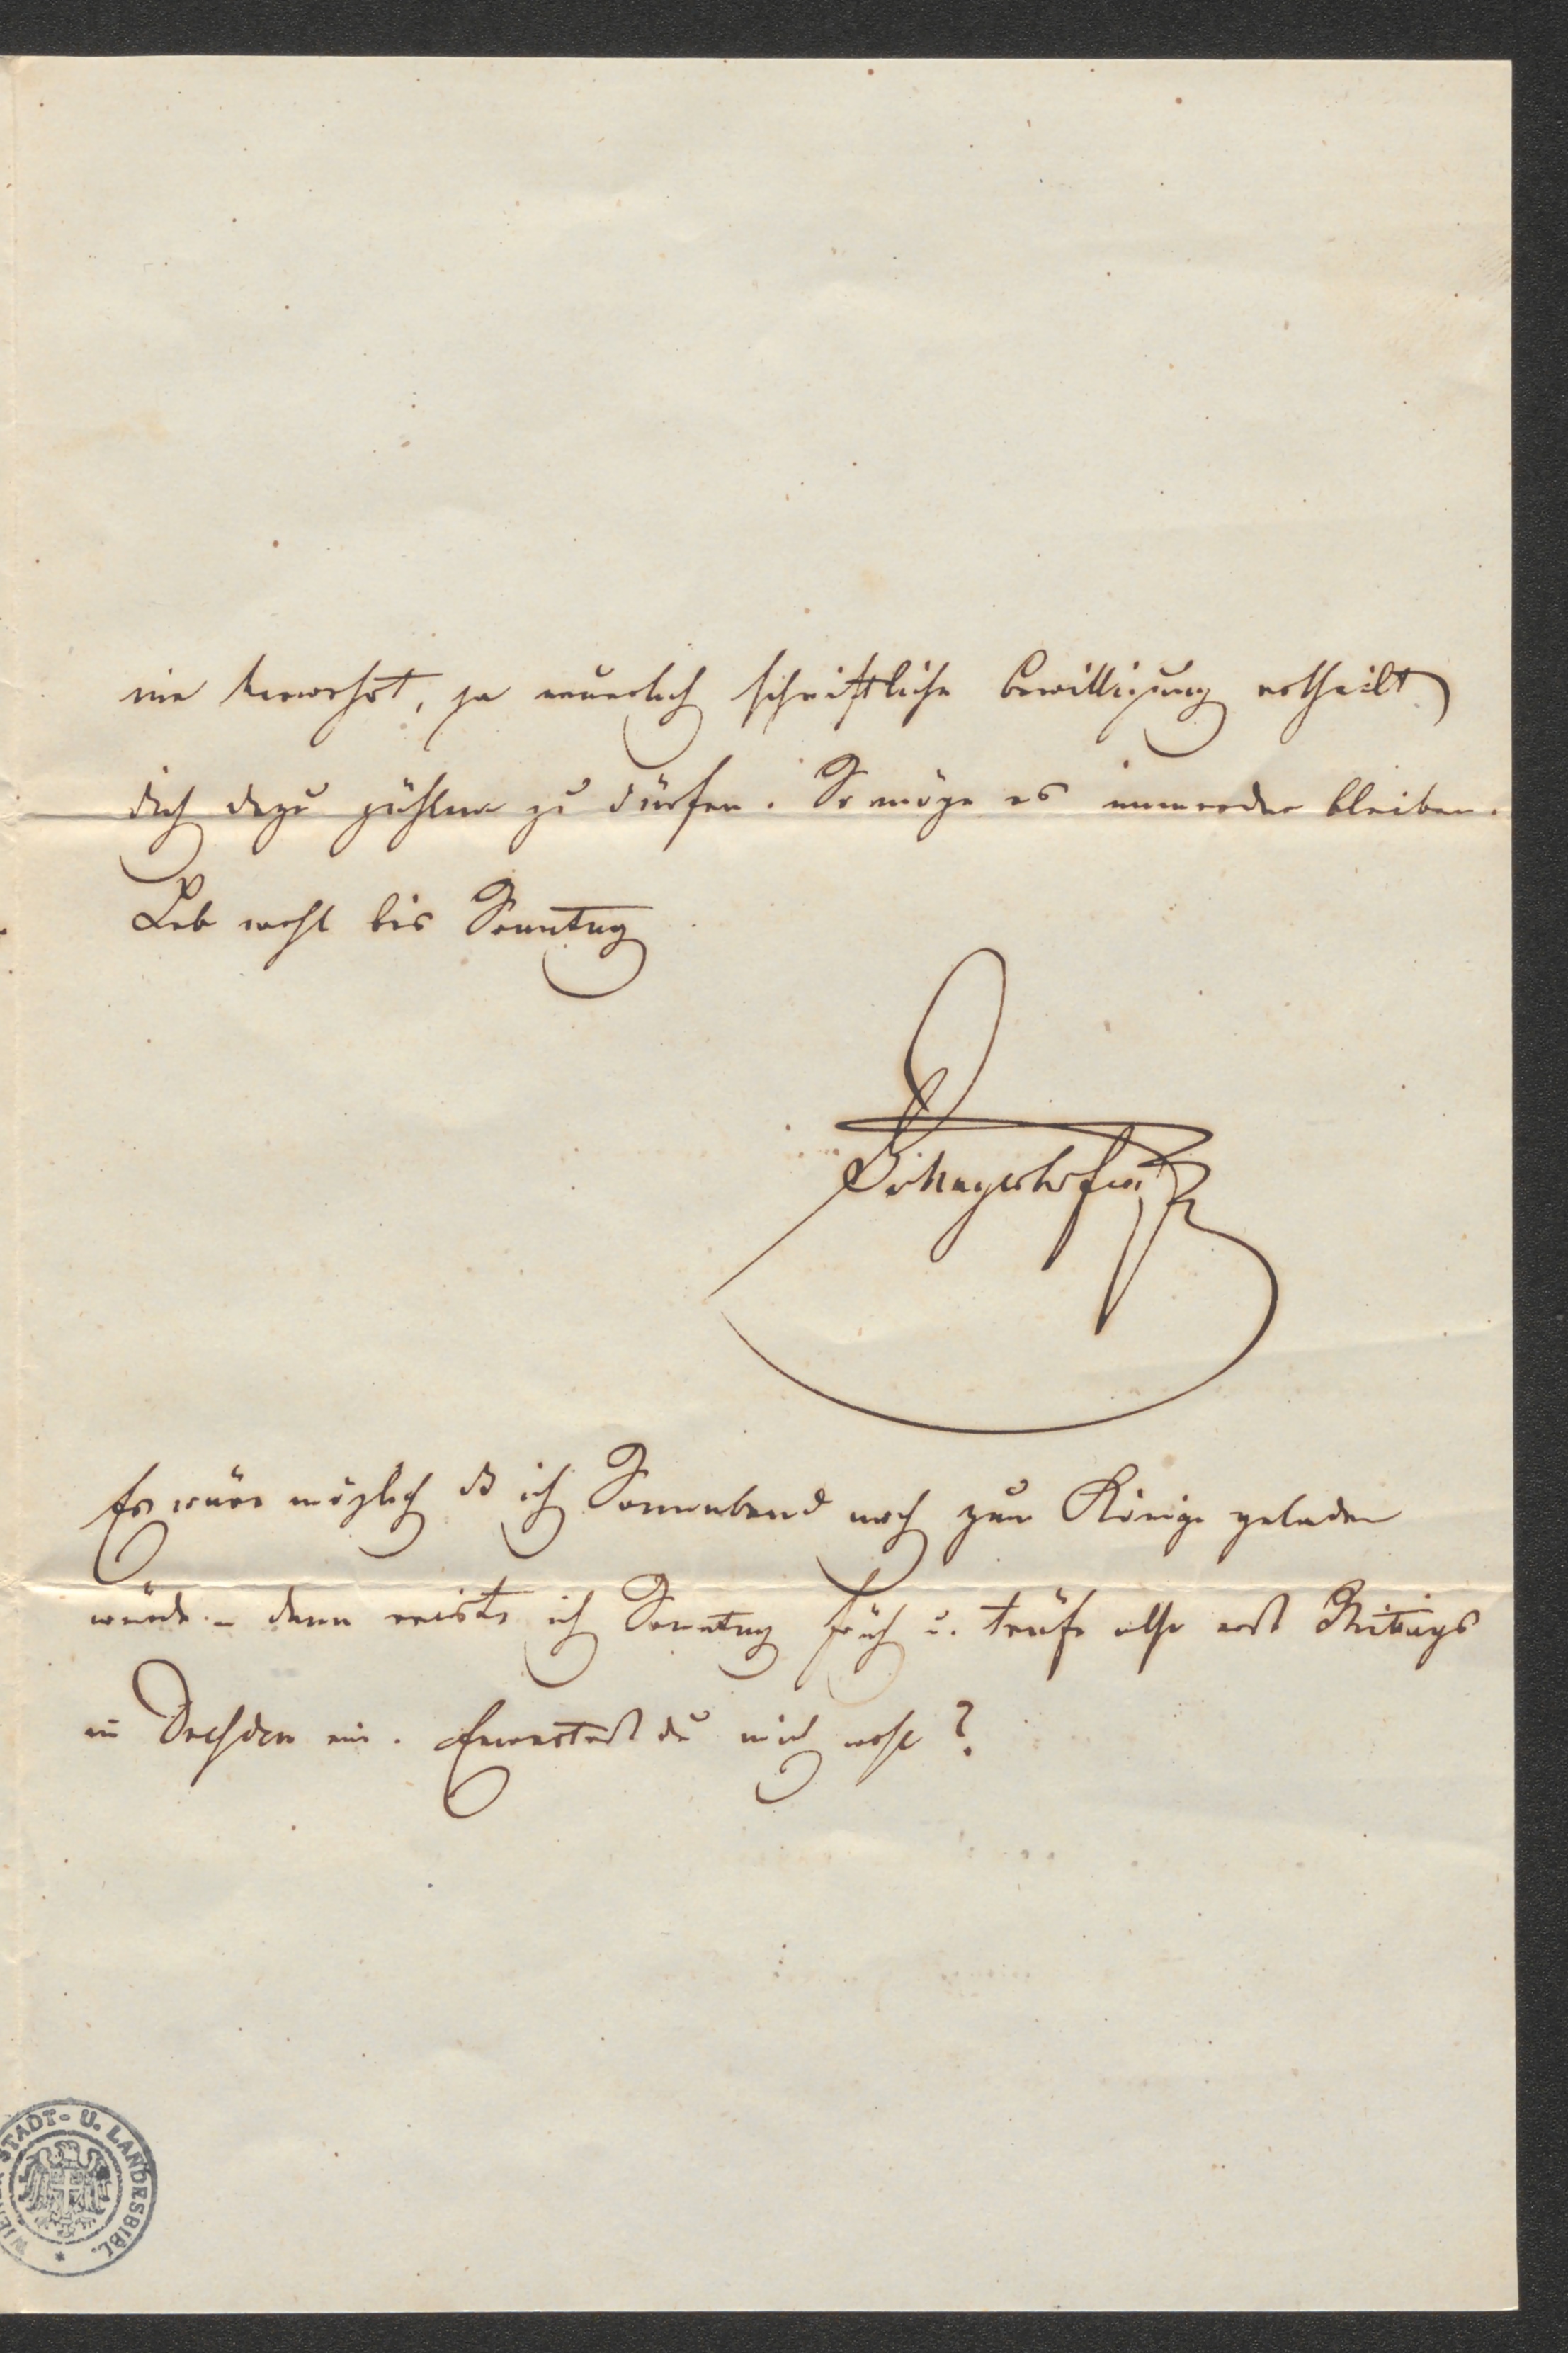 nie verwehrt, ja neuerlich schriftliche Bewilligung ertheilt
dich dazu zählen zu dürfen. So möge es immerdar bleiben.
Leb wohl bis Sonntag
Es wäre möglich dß ich Sonnabend noch zum Könige geladen
würde – dann reiste ich Sonntag früh u. träfe also erst Mittags
in Dresden ein. Erwartest du mich wohl?
STADT- U. LANDESBIBL.